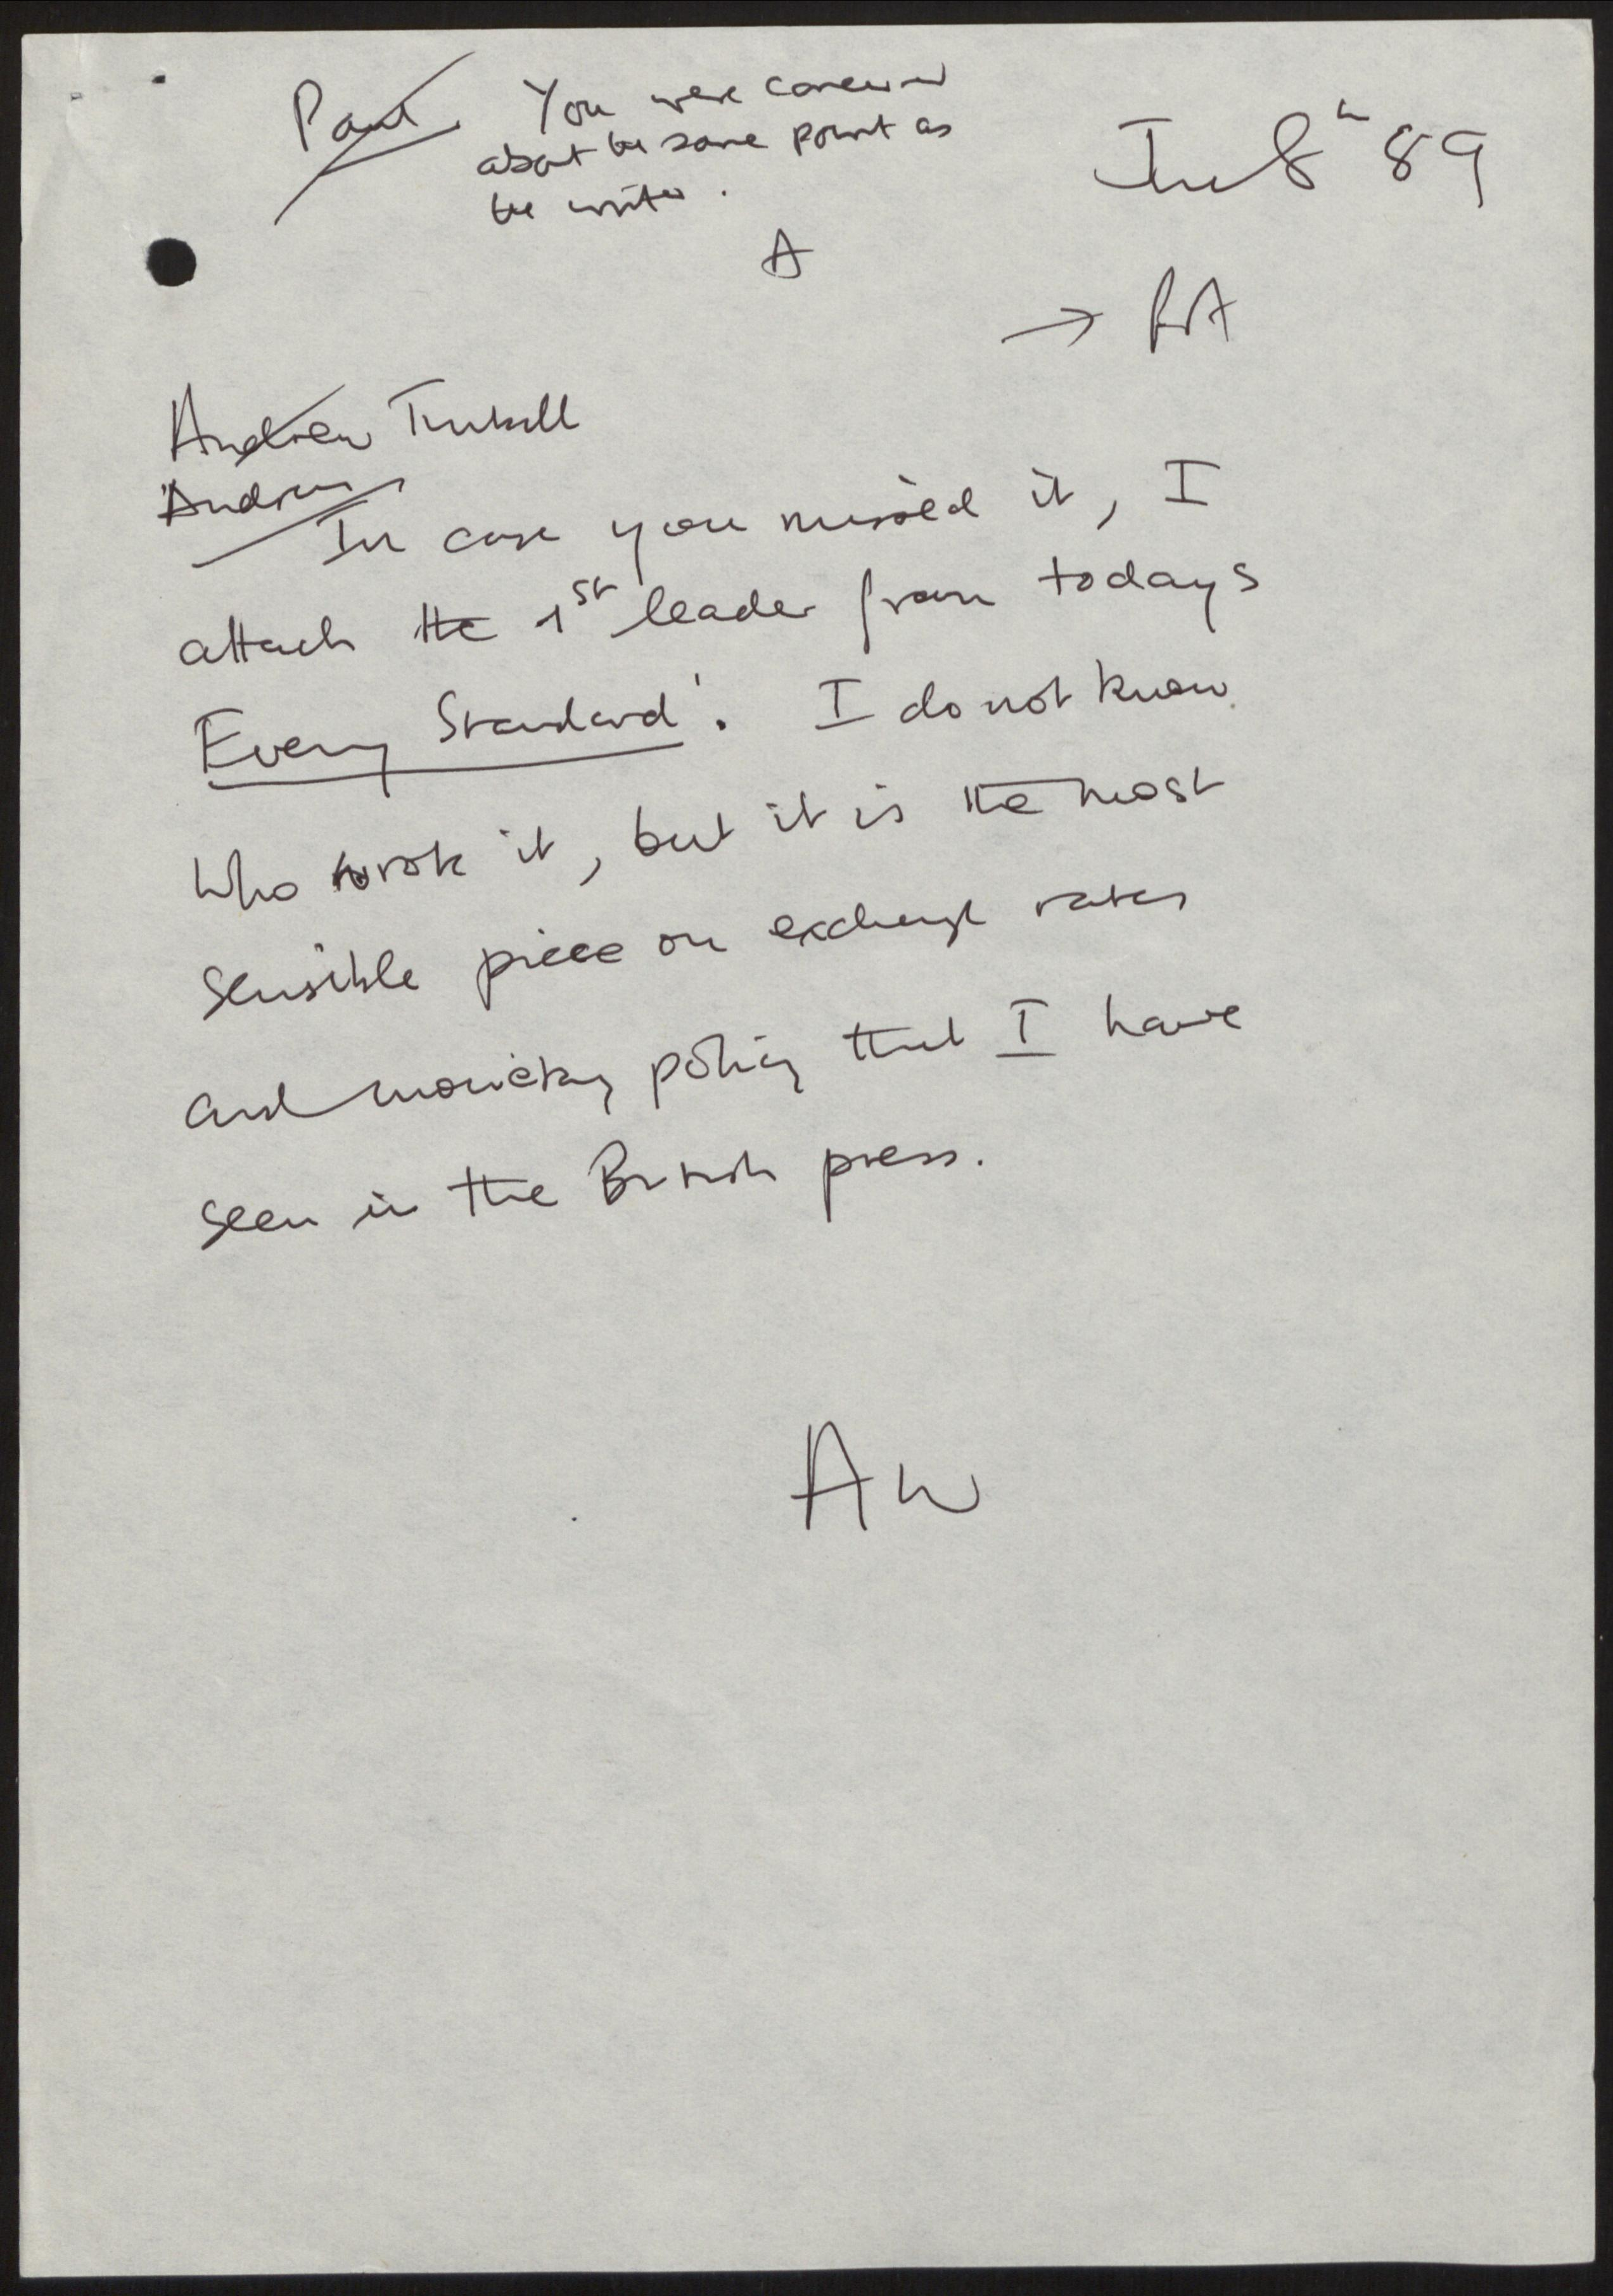 Paul You were concerned
about the same point as
the writer.
A
June 8th 89
→ PA
Andrew Turnbull
Andrew
In case you missed it, I
attach the 1st leader from todays
Evening Standard'. I do not know
who wrote it, but it is the most
sensible piece on exchange rates
and monetary policy that I have
seen in the British press.
AW